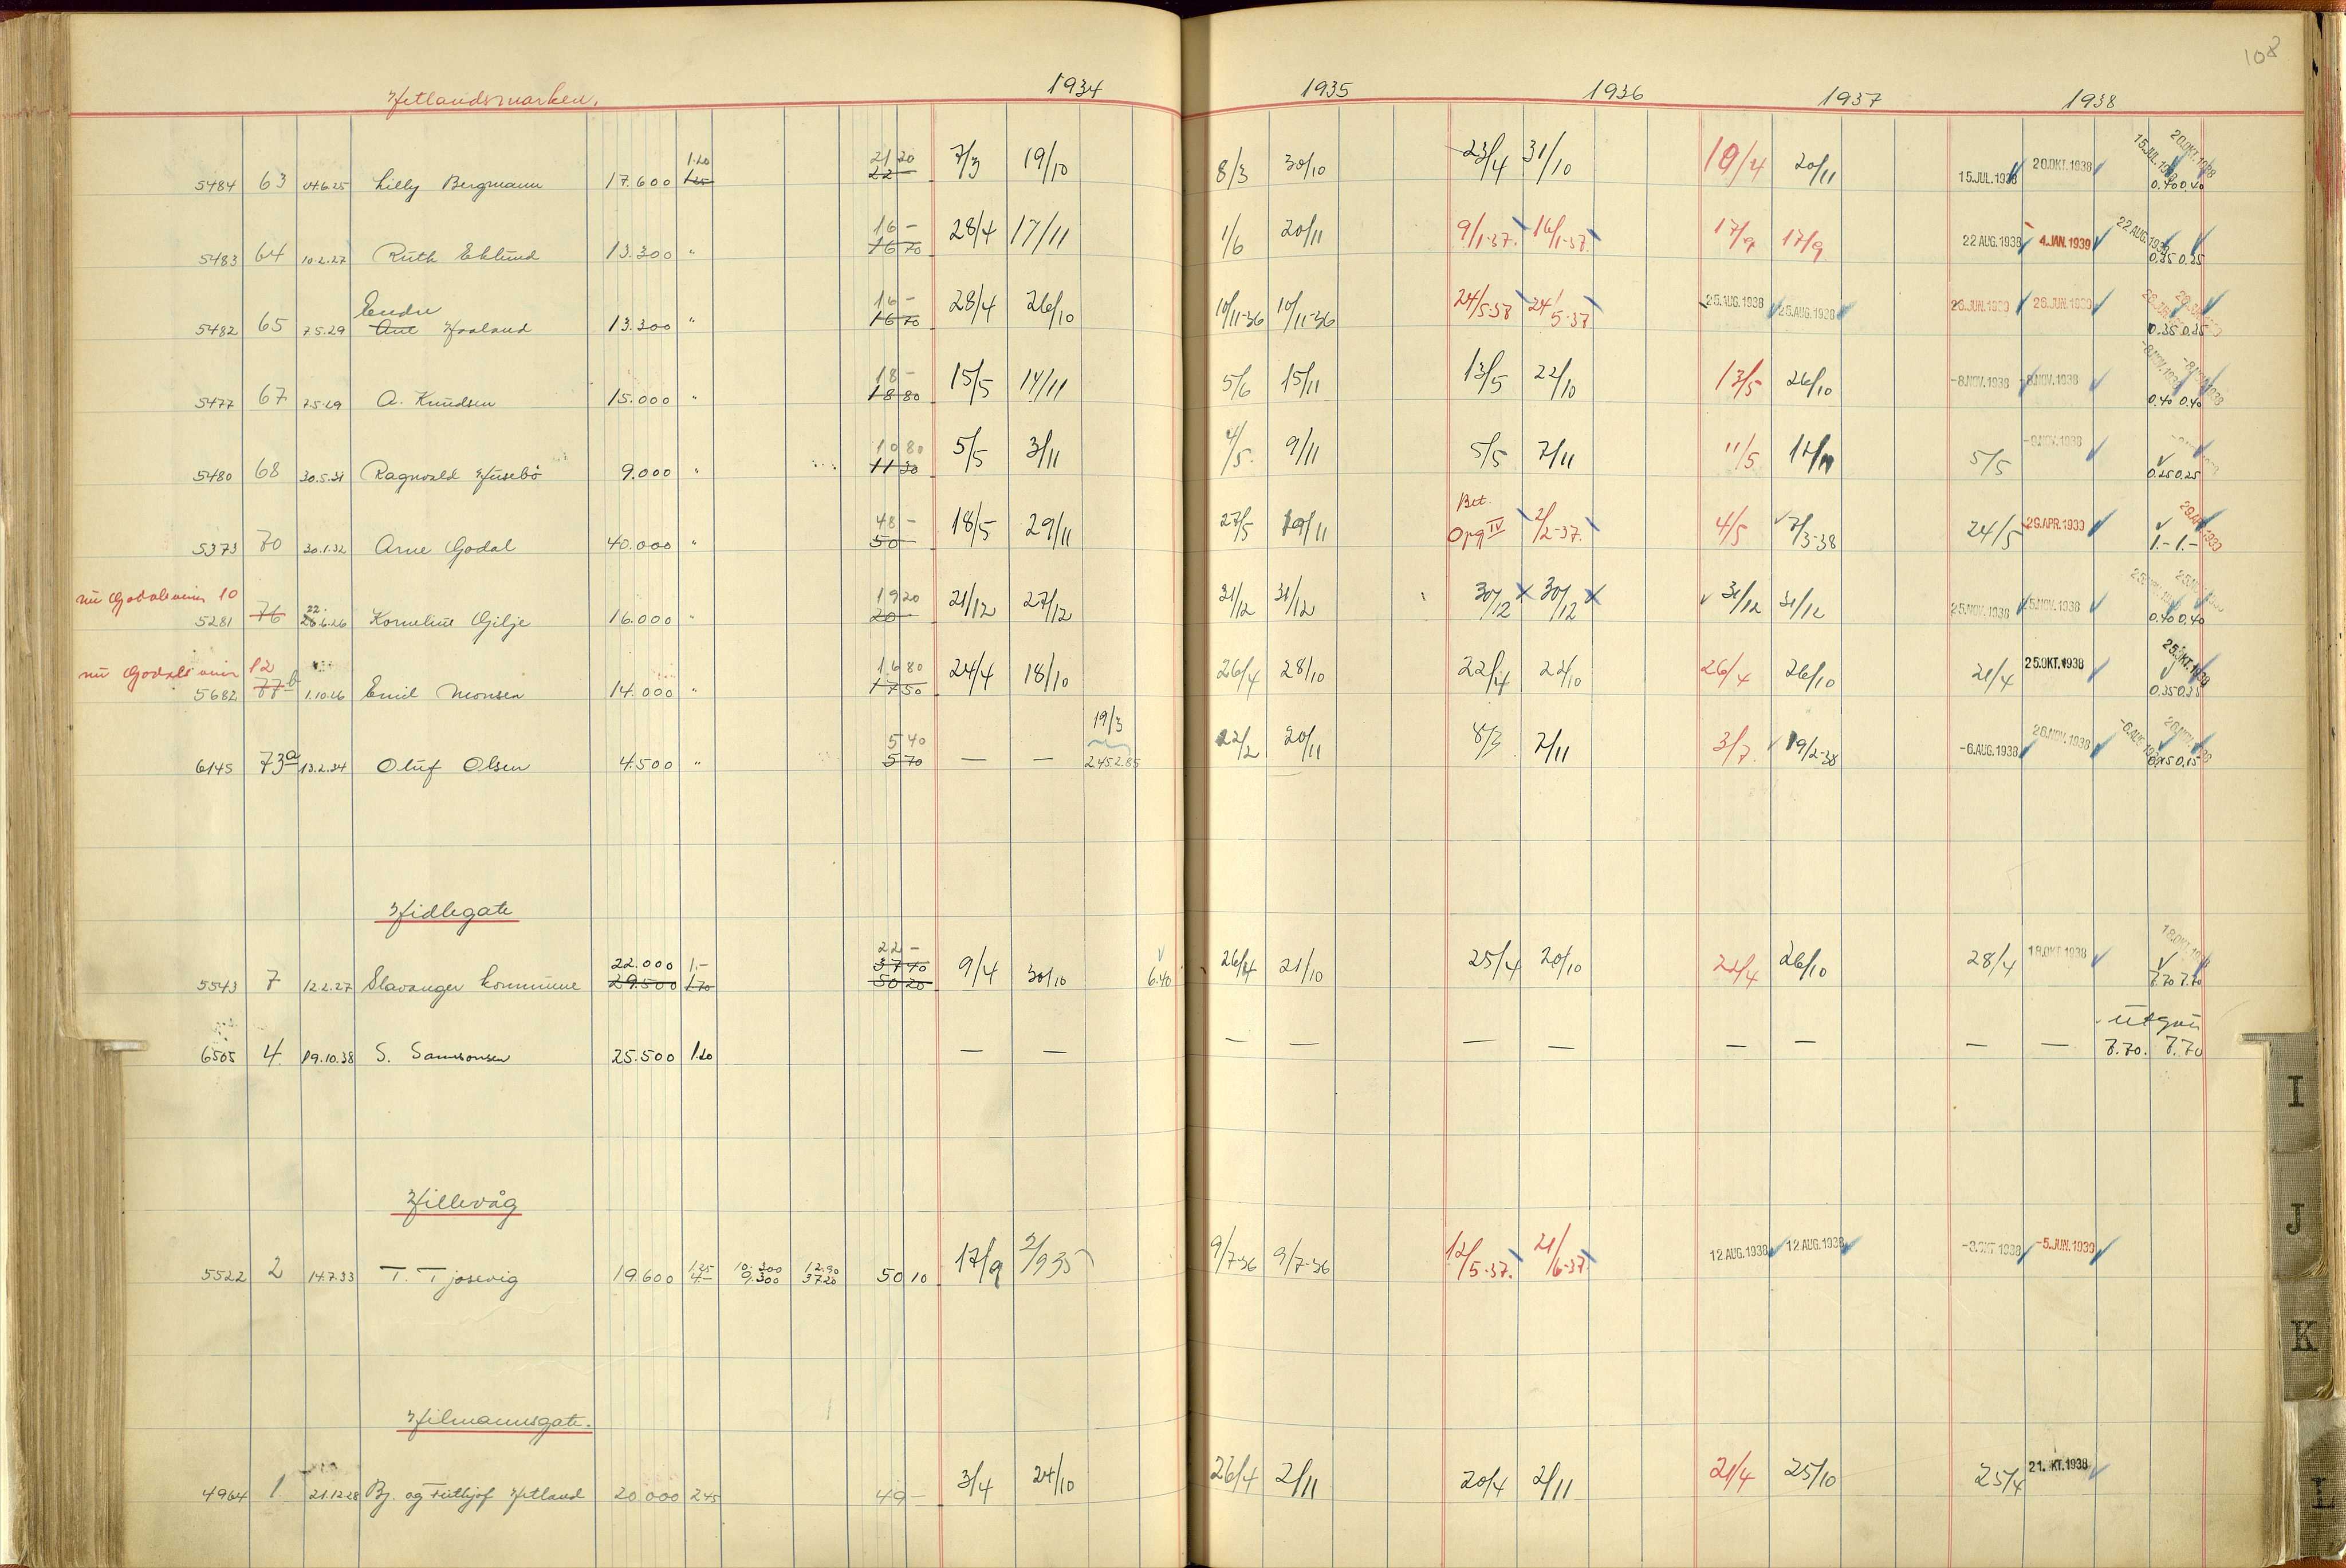 108
Hetlandsmarken. 1934 1935 1936 1937 1938
1.20 21 20
5484 63 Lilly Bergmann 17.600 1.25 22 – 7/3 19/10 8/3 30/10 23/4 31/10 19/4 20/11 15.JUL.1938 20.OKT.1938 15.JUL.1938 20.OKT.1938 0.40 0.40
16 –
5483 64 10.2.27 Ruth Eklund 13.300 " 16 70 28/4 17/11 1/6 20/11 9/1-37. 16/1-37. 17/9 17/9 22 AUG.1938 4.JAN.1939 22 AUG.1938 0.35 0.35
Endre 16 –
5482 65 7.5.29 Ant Haaland 13.300 " 16 70 28/4 26/10 10/11-36 10/11-36 24/5-37 24/5-37 25.AUG.1938 25.AUG.1938 26.JUN.1939 26.JUN.1939 0.35 0.35
18 –
5477 67 7.5.29 A. Knudsen 15.000 " 18 80 15/5 14/11 5/6 15/11 13/5 22/10 13/5 26/10 -8.NOV.1938 -8.NOV.1938 -8.NOV.1938 -8.NOV.1938 0.40 0.40
10 80
5480 68 30.5.31 Ragnvald Husebö 9.000 " 11 30 5/5 3/11 4/5. 9/11 5/5 7/11 11/5 5/5 -9.NOV.1938 0.25 0.25
48 – Bet.
5373 70 30.1.32 Arne Godal 40.000 " 50 – 18/5 29/11 27/5 19/11 Opg IV 2/2-37. 4/5 7/3-38 24/5 29.APR.1939 29.APR.1939 1.– 1.–
nu Godalsveien 10 22. 19 20
5281 76 26.6.26 Korneline Gilje 16.000 " 20 – 21/12 27/12 31/12 31/12 30/12 30/12 31/12 31/12 25.NOV.1938 25.NOV.1938 0.40 0.40
nu Godalsveien 12 16 80
5682 77b 1.10.26 Emil Monsen 14.000 " 17 50 24/4 18/10 26/4 28/10 22/4 22/10 26/4 26/10 21/4 25.OKT.1938 25.OKT.1938 0.35 0.35
5 40 19/3
6145 73a 13.2.34 Oluf Olsen 4.500 " 5 70 — — 2452.85 22/2 20/11 8/3 7/11 3/7. 19/2-38 -6.AUG.1938 26.NOV.1938 -6.AUG.1938 26.NOV.1938 0.15 0.15
Hidlegate
22.000 1.– 22 –
37 40
5543 7 12.2.27 Stavanger kommune 29.500 1.70 50 20 9/4 30/10 6.40 26/4 21/10 25/4 20/10 22/4 26/10 28/4 18.OKT.1938 18.OKT.1938 7.70 7.70
utgår
6505 4. 19.10.38 S. Samsonsen 25.500 1.20 — — — — — — — — — — 7.70. 7.70
Hillevåg
1.25 10.300 12.90
5522 2 14.7.33 T. Tjosevig 19.600 4.– 9.300 37.20 50 10 17/9 2/9 35 9/7-36 9/7-36 12/5-37. 21/6-37. 12.AUG.1938 12.AUG.1938 -3.OKT.1938 -5.JUN.1939
Hilmannsgate.
4964 1. 21.12.28 Bj. og Fridtjof Hetland 20.000 2.45 49 – 3/4 24/10 26/4 2/11 20/4 2/11 21/4 25/10 25/4 21. KT.1938
I
J
K
L